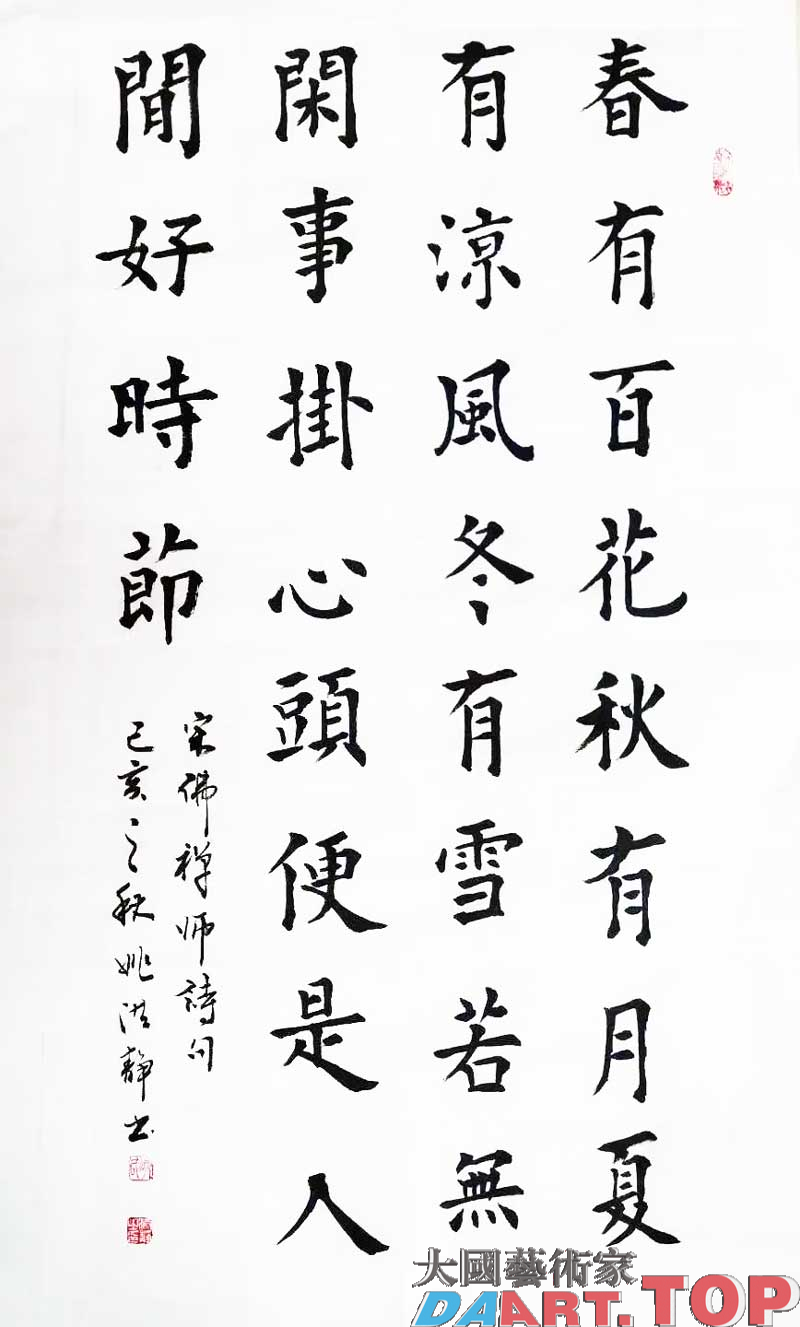 春有百花秋有月夏
有涼風冬有雪若無
閑事掛心頭便是人
間好時節
宋佛禅师詩句
己亥之秋姚洪静书
大國藝術家
DAART.TOP